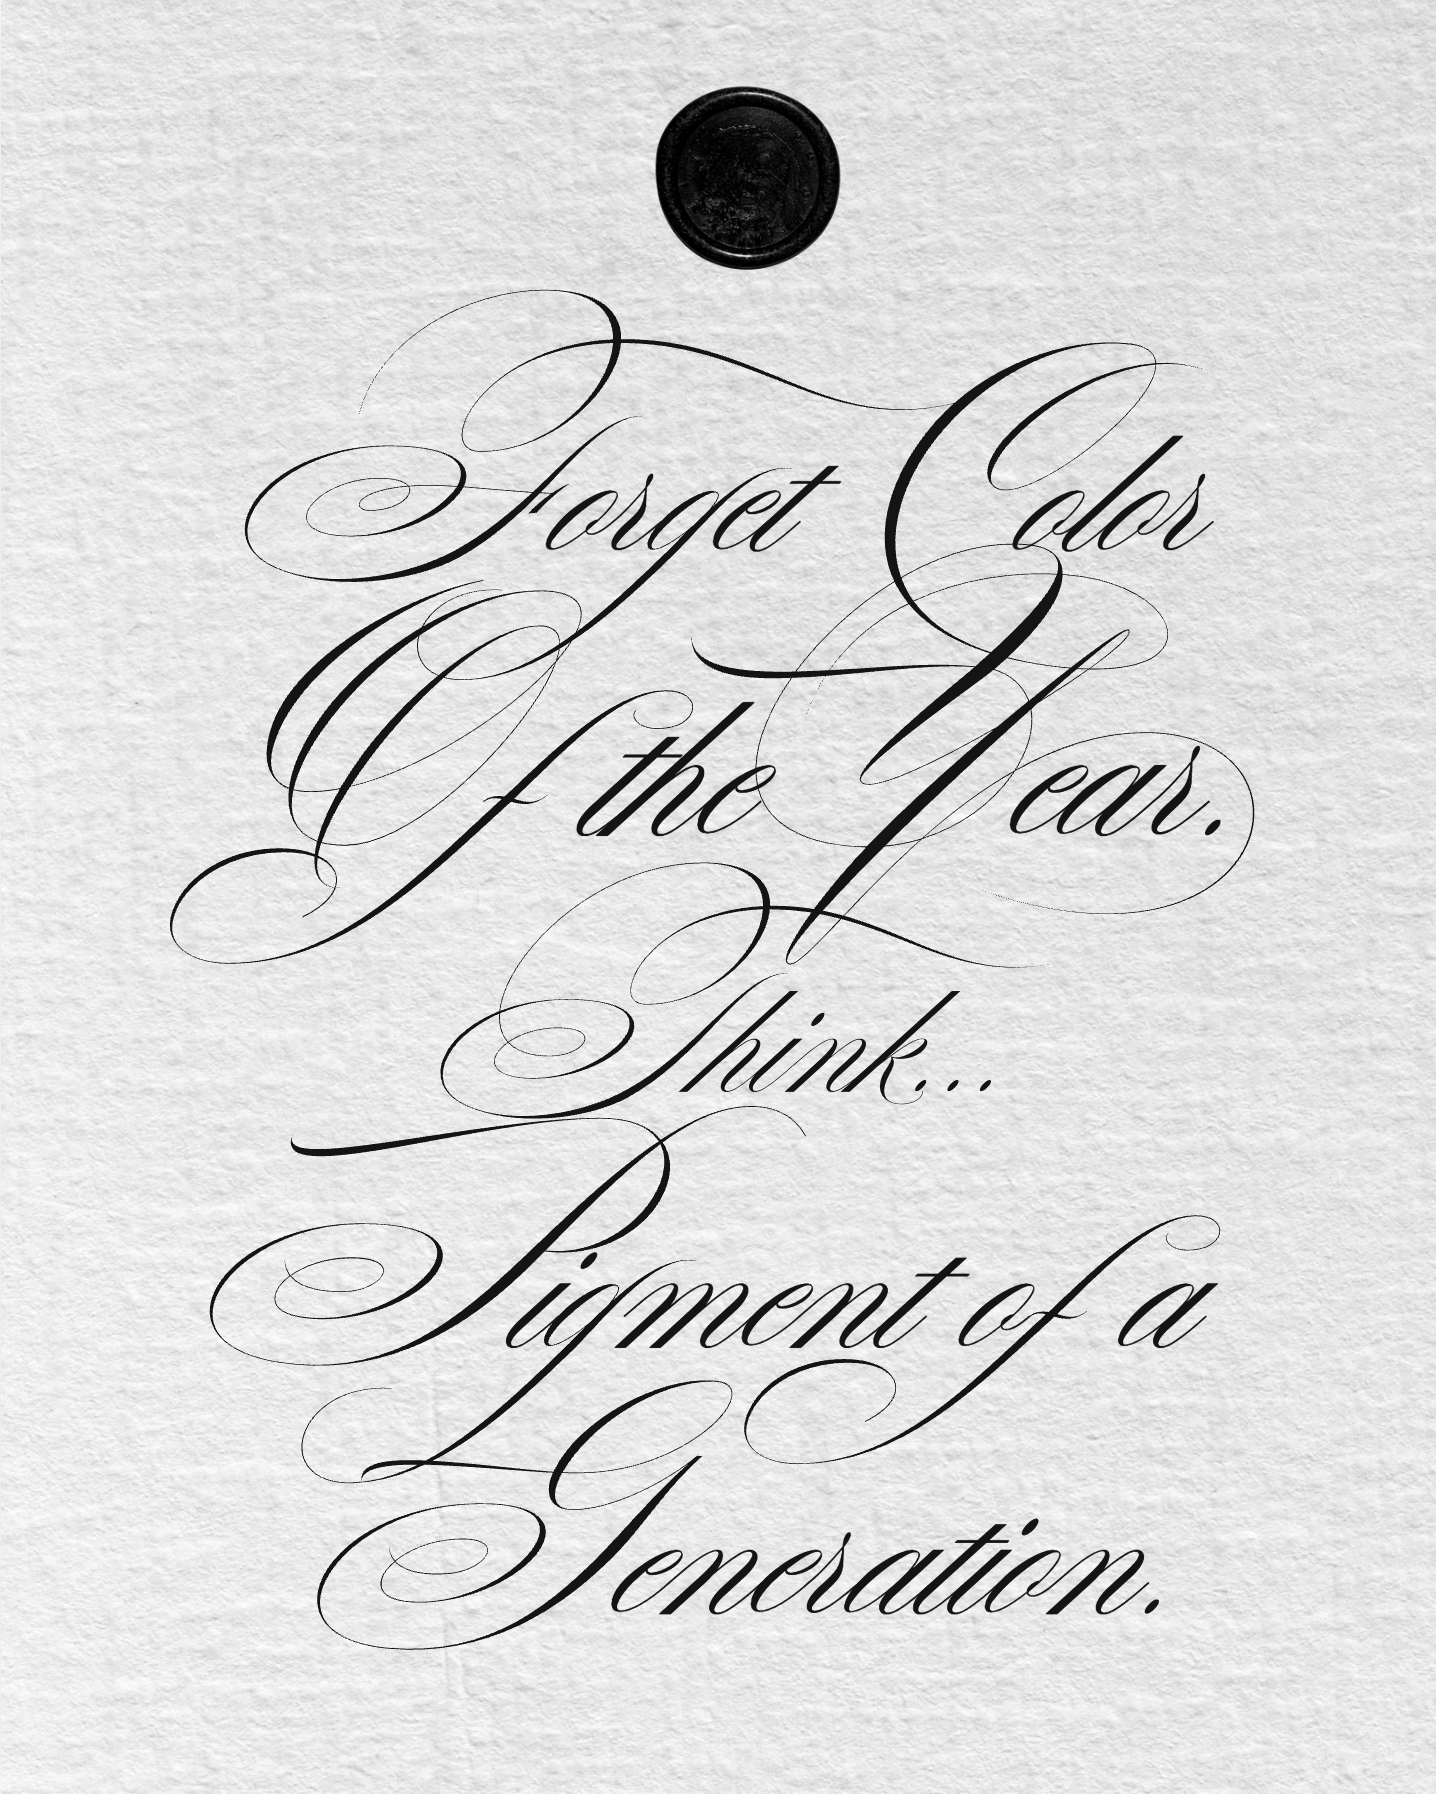 Forget Color
Of the Year.
Think...
Pigment of a
Generation.